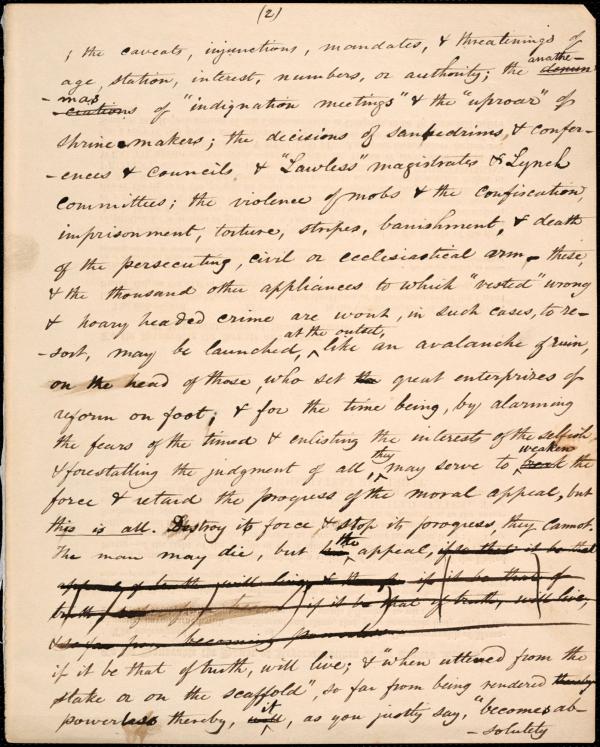 (2)
; the caveats, injunctions, mandates, & threatenings of
age, station, interest, numbers, or authority; the anathe-
-mas of "indignation meetings" & the "uproar" of
shrine makers; the decisions of sanhedrims, & confer-
-ences & councils, & "Lawless" magistrates & Lynch
committees; the violence of mobs & the confiscation,
imprisonment, torture, stripes, banishment, & death
of the persecuting, civil or ecclesiastical arm – these,
& the thousand other appliances to which "vested" wrong
& hoary headed crime are wont, in such cases, to re-
-sort, may be launched, at the outset, like an avalanche of ruin,
on the head of those, who set the great enterprizes of
reform on foot; & for the time being, by alarming
the fears of the timed & enlisting the interests of the selfish,
& forestalling the judgment of all, they may serve to weaken the
force & retard the progress of the moral appeal, but
this is all. Destroy its force & stop its progress, they cannot.
The man may die, but the appeal, if so that it be that
appeal of truth will live, & if it be that of
truth if it be that of truth, will live,
& so far from becoming powerless
if it be that of truth, will live; & "when uttered from the
stake or on the scaffold", so far from being rendered thereby
powerless thereby, it, as you justly say, "becomes ab-
-solutely